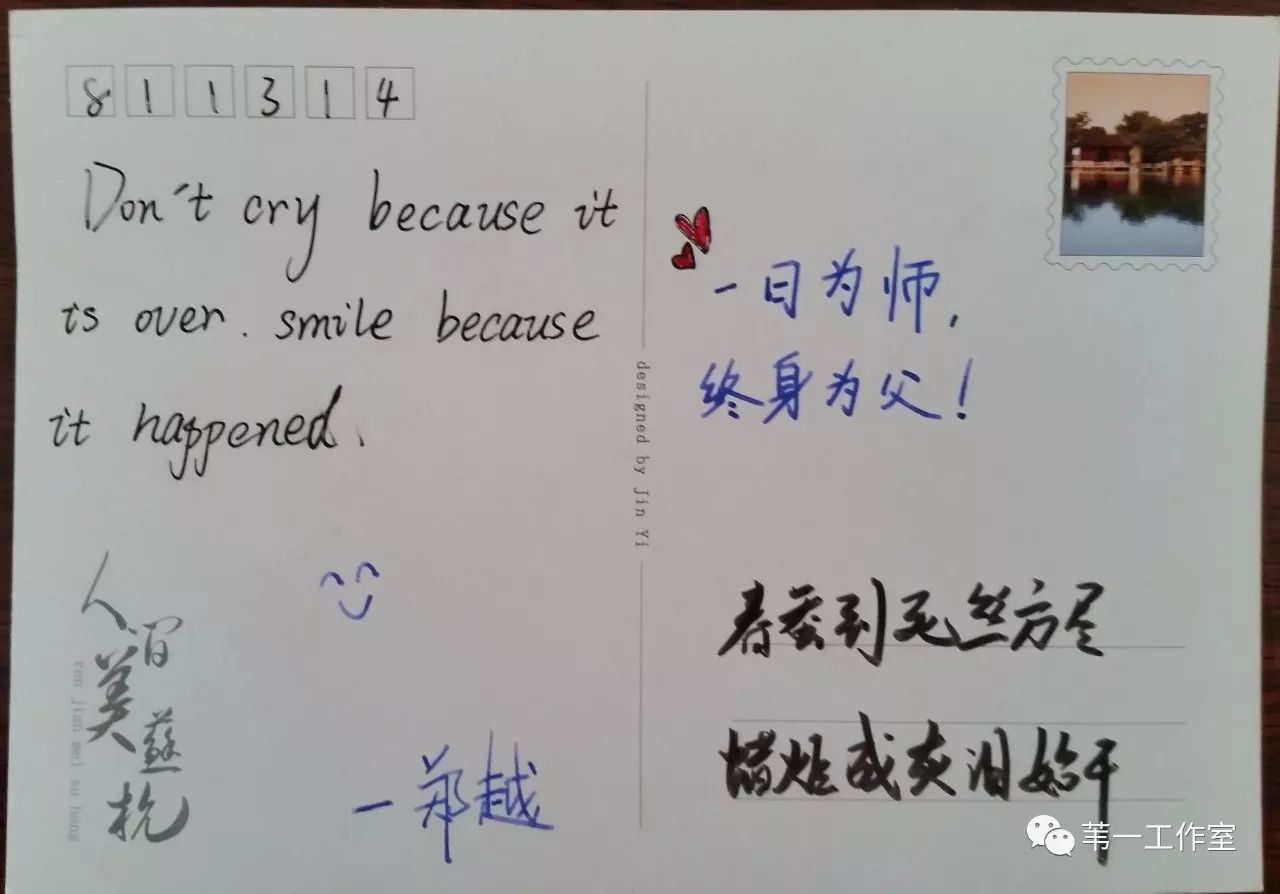 811314
Don't cry because it
is over. smile because
it happened.
人间
美
蘇
杭
ren jian mei su hang
一郑越
designed by Jin Yi
一日为师，
终身为父！
春蚕到死丝方尽
蜡炬成灰泪始干
苇一工作室